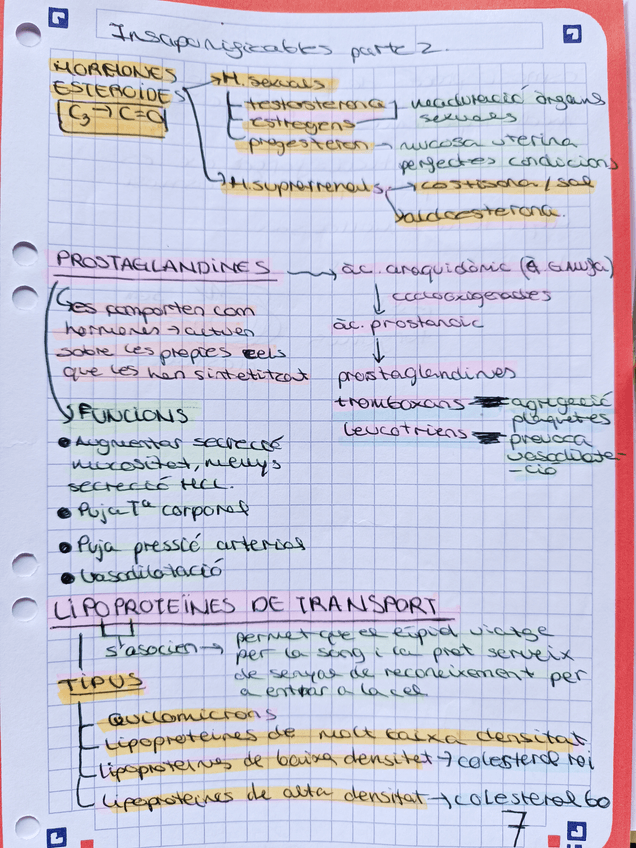 Insaponificables parte 2.
HORMONES
ESTEROIDES
C3 → C=O
H. sexuals
testosterona
estrogens
maduració òrgans
sexuals
progesteron → mucosa uterina
perfectes condicions
H. suprarrenals → cortisona / sol
aldosterona.
PROSTAGLANDINES → àc. araquidònic
cicloxigenases
àc. prostanoic
prostaglandines
tromboxans
agregació
plaquetes
leucotriens
provoca
vasodilata-
-ció
es comporten com
hormones → actuen
sobre les pròpies cels
que les han sintetitzat
FUNCIONS
• Augmentar secreció
mucositat, menys
secreció HCl.
• Puja Tª corporal
• Puja pressió arterial
• Vasodilatació
LIPOPROTEÏNES DE TRANSPORT
s'asocien → permet que el lípid viatge
per la sang i la prot serveix
de senyal de reconeixement per
a entrar a la cel
TIPUS
Quilomicrons
Lipoproteïnes de molt baixa densitat
Lipoproteïnes de baixa densitat → colesterol roi
Lipoproteïnes de alta densitat → colesterol bo
7